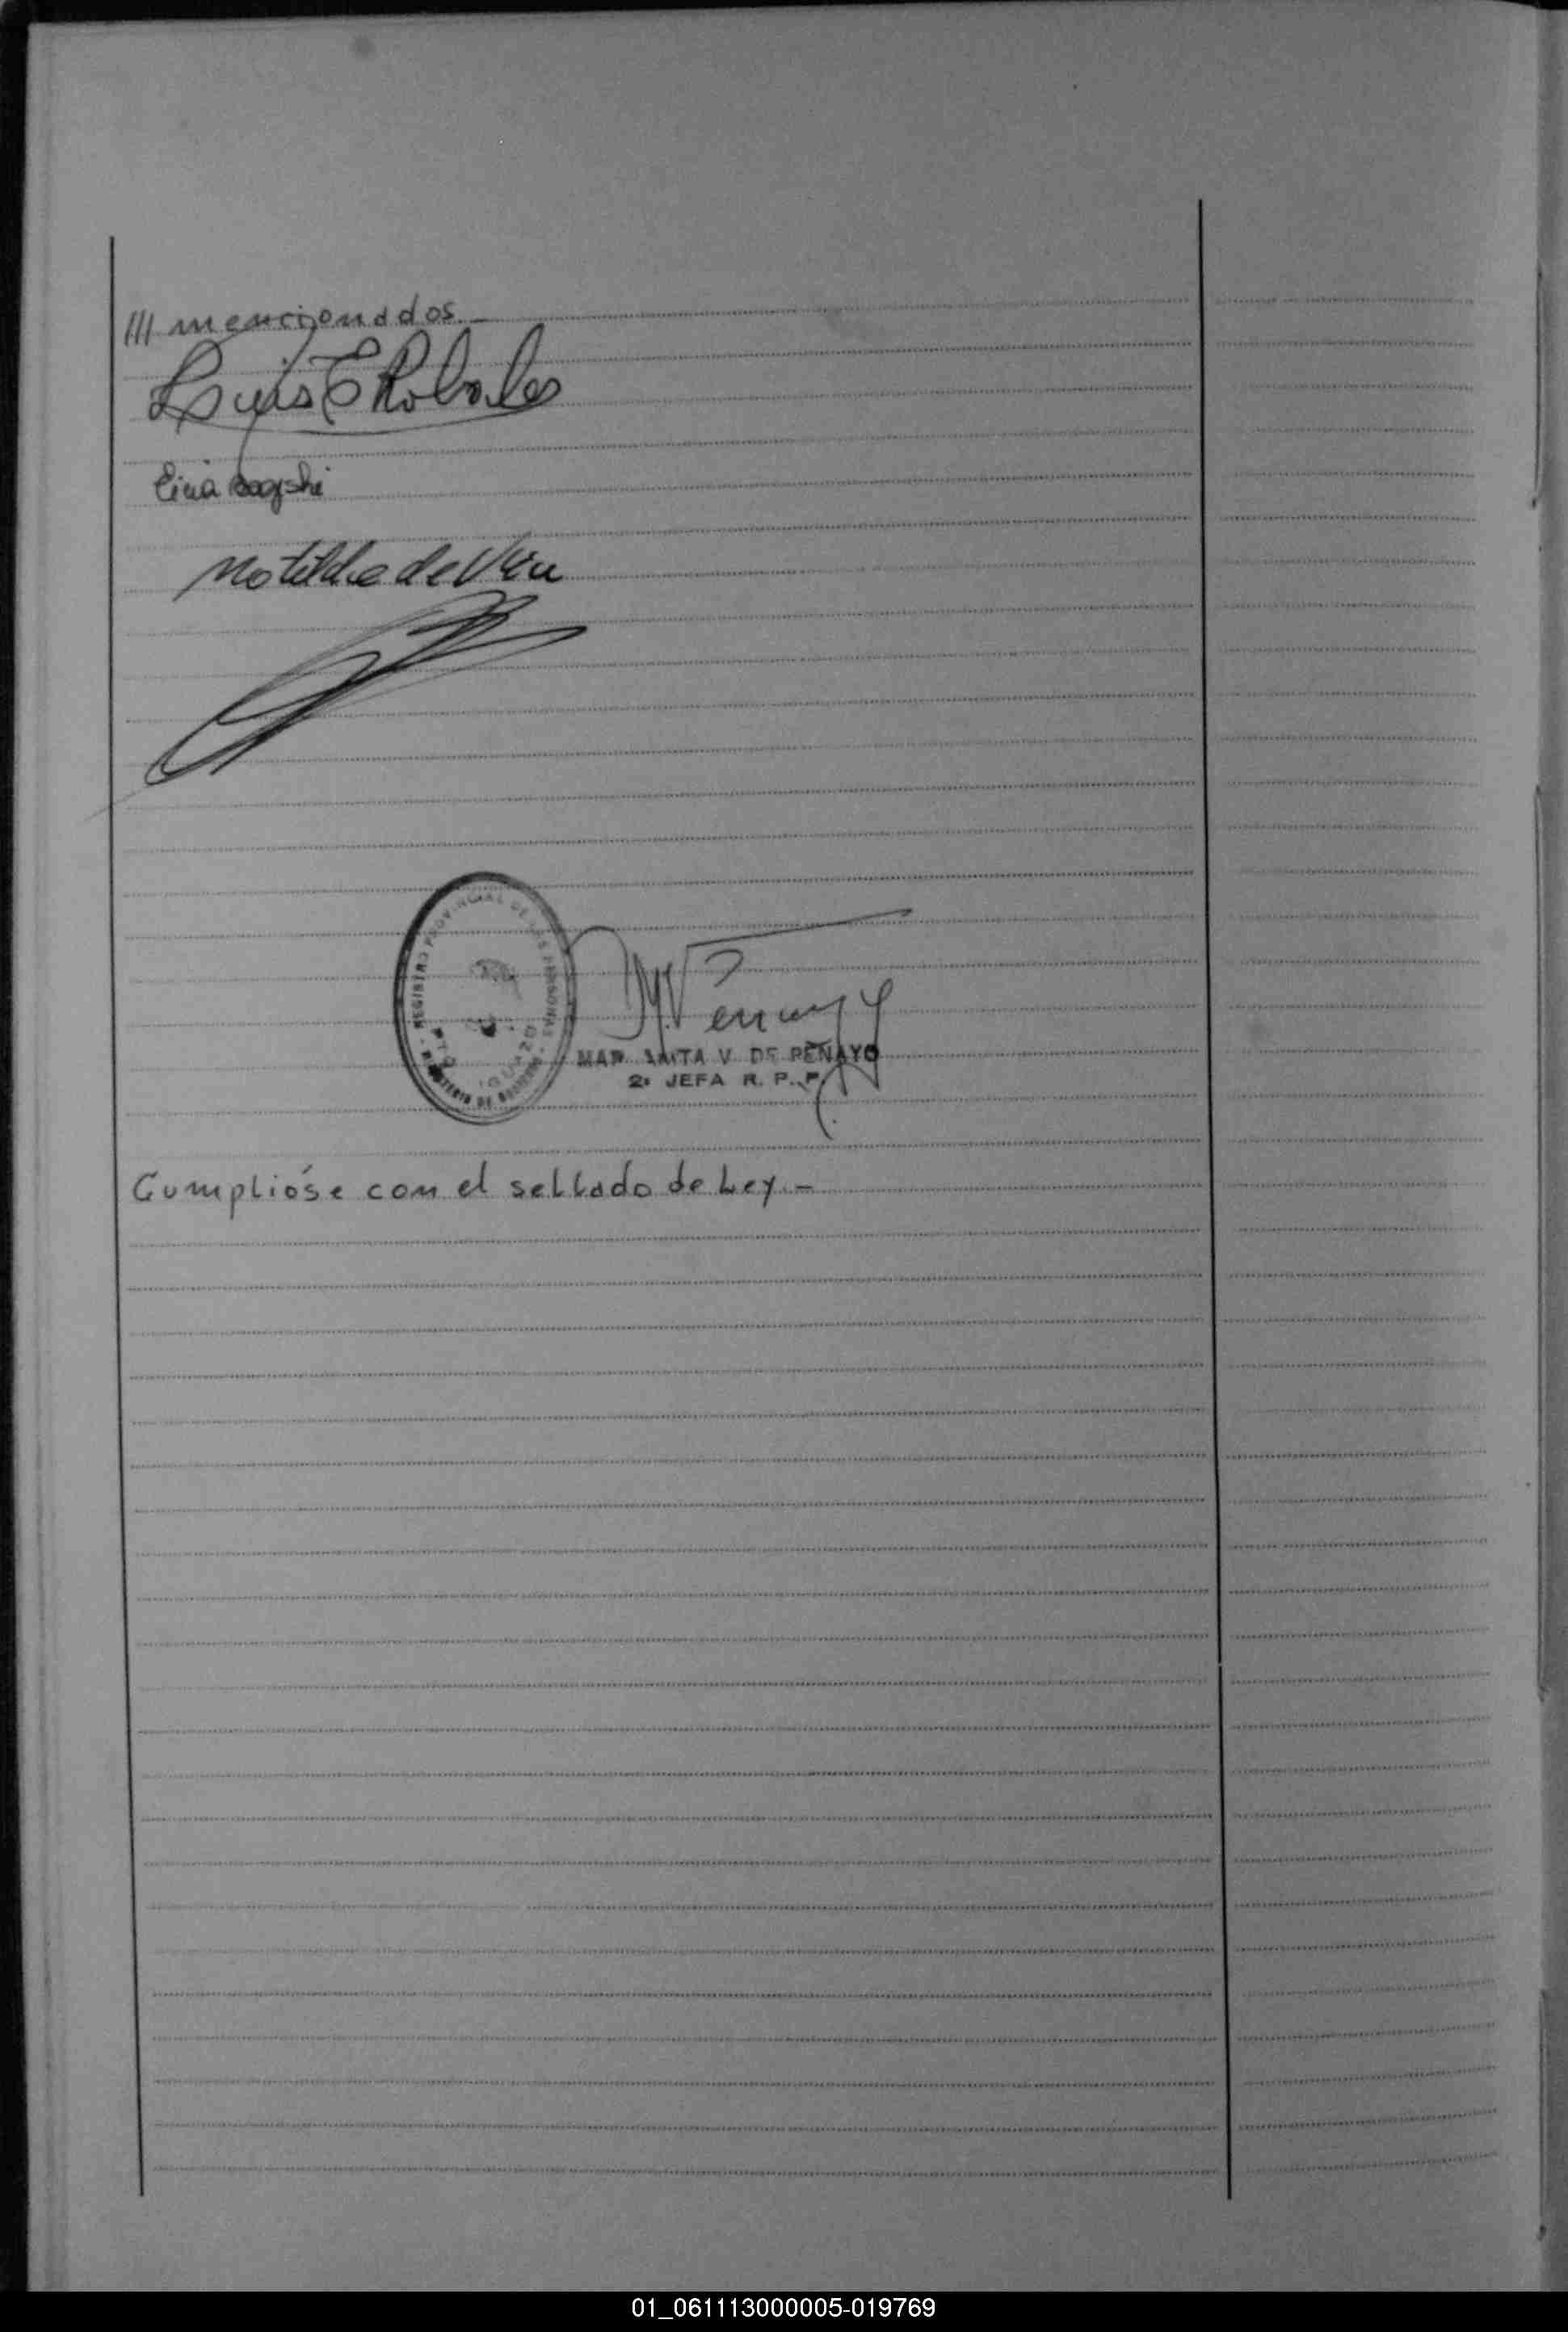 /// mencionados.-
Luis E Robales
Matilde de Vera
REGISTRO PROVINCIAL DE LAS PERSONAS
MINISTERIO DE GOBIERNO
PTO. IGUAZU
V. DE PEÑAYO
2º JEFA R. P. P.
Cumplióse con el sellado de Ley.-
01_061113000005-019769